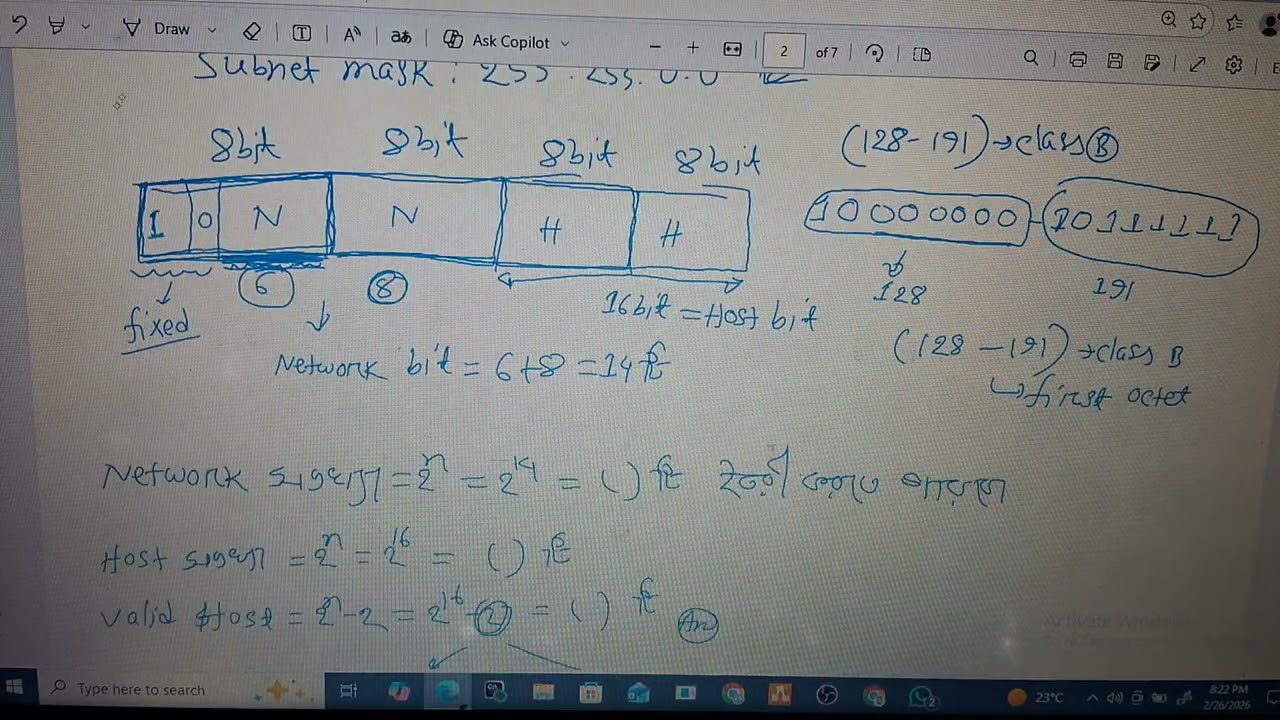 Draw
aあ
Ask Copilot
2 of 7
Subnet mask : 255 . 255. 0.0
8bit 8bit 8bit 8bit
(128-191)→class B
1 0 N N H H
10 000000 - 10111111
6 8
128 191
fixed
16bit = Host bit
(128 - 191) →class B
first octet
Network bit = 6+8 = 14 টি
Network সংখ্যা = 2ⁿ = 2¹⁴ = ( ) টি তৈরী করতে পারবো
Host সংখ্যা = 2ⁿ = 2¹⁶ = ( ) টি
Valid Host = 2ⁿ-2 = 2¹⁶-2 = ( ) টি Ans
Activate Windows
Type here to search
23°C
8:22 PM
2/26/2026